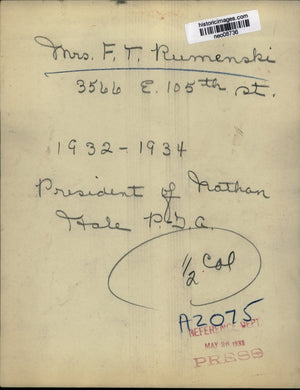 historicimages.com
neo08736
Mrs. F. T. Rumenski
3566 E. 105th St.
1932-1934
President of Nathan
Hale P.T.A.
1/2 Col
A2075
REFERENCE DEPT.
MAY 26 1933
PRESS